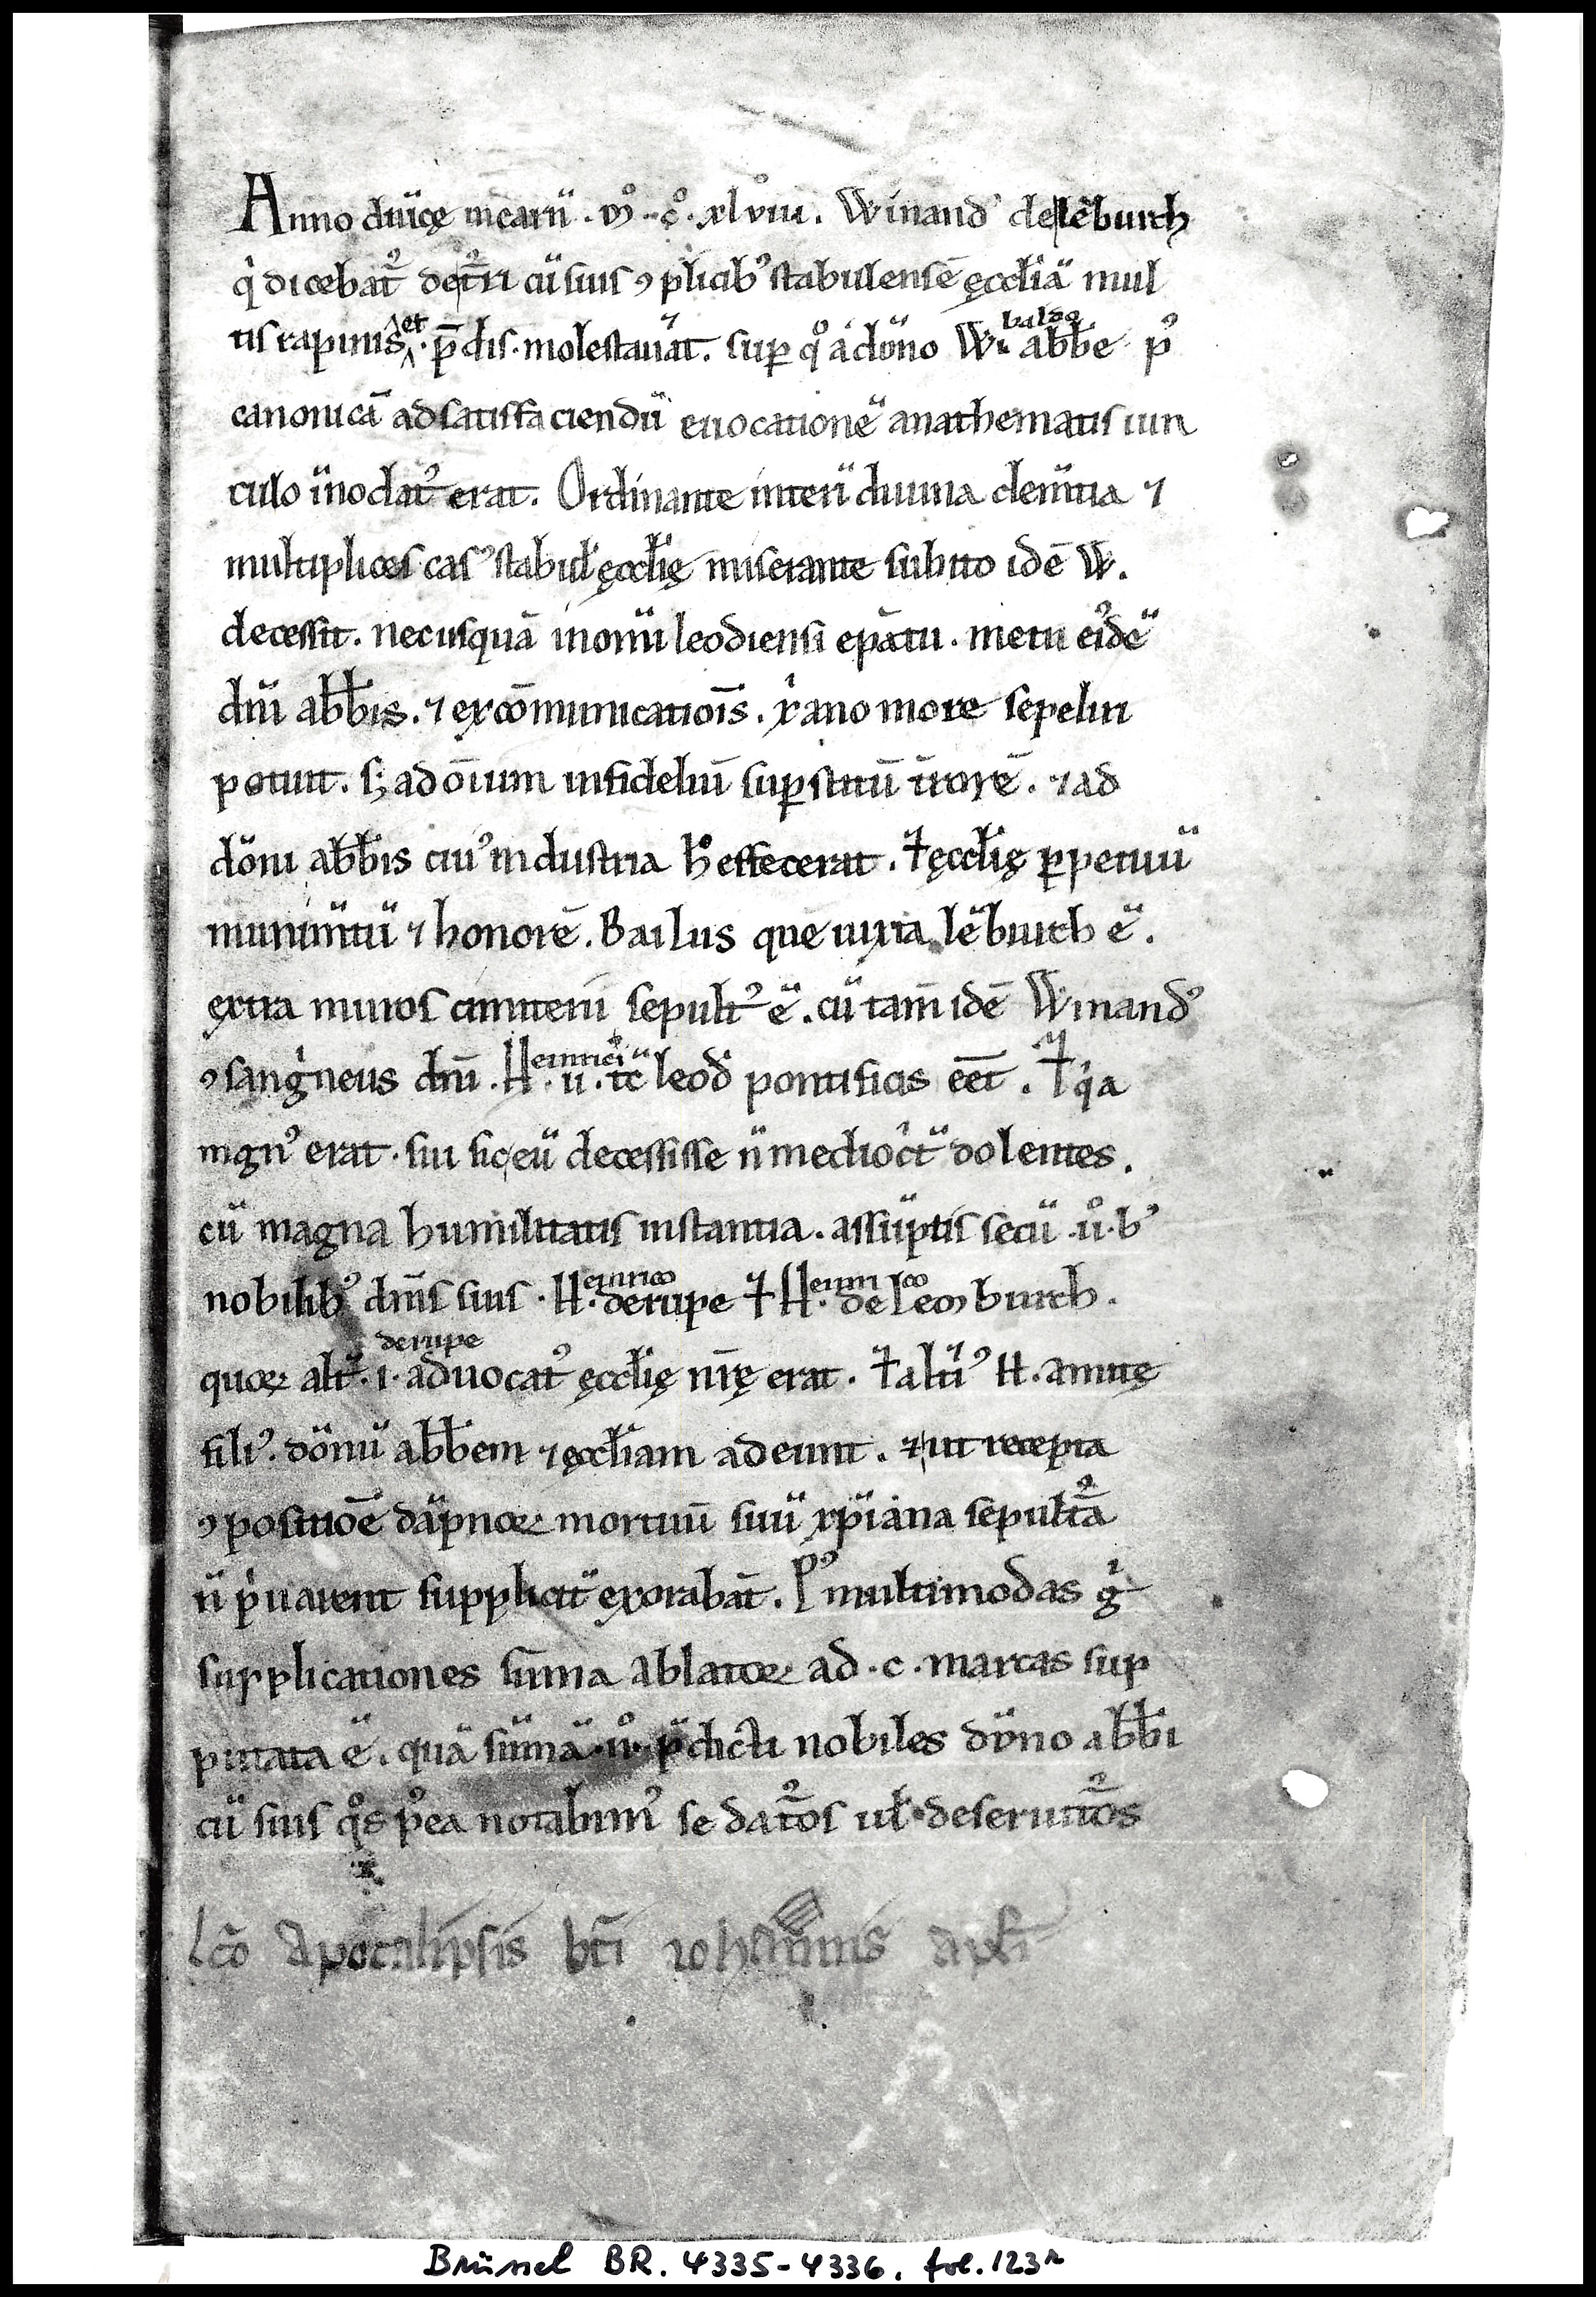 Anno dn̄icę incarn̄ . mͦ . cͦ . xlͦviii . Winandꝰ de lēburch
qͥ dicebat᷒ de t᷒ri cū suis ꝯplicibꝰ stabulensē ęccl̄iā mul
tis rapinis et p̄dis molestauāt. sup̱ qͦ a dōno W. abb̄e pꝰ
canonicā ad satisfaciendū euocationē anathematis uin
culo īnodatꝰ erat. Ordinante interī diuina clem̄tia ⁊
multiplices casꝰ stabul̄ ęccl̄ię miserante subito idē W.
decessit. nec usquā in om̄i leodiensi ep̄atu . metu eiꝰdē
dn̄i abb̄is . ⁊ excōmunicatiōis . xͥano more sepeliri
potuit. sꝫ ad ōium infideliū sup̱stitū t̄rorē . ⁊ ad
dōni abb̄is cuiꝰ industria hͦ effecerat . ⁊ ęccl̄ię p̱petuū
munim̄tū ⁊ honorē. Bailus que iuxta lēburch ē .
extra muros cimiterii sepultꝰ ē . cū tam̄ idē Winandꝰ
ꝯsangͥneus dn̄i . H einrici . ii . tc̄ leod̄ pontificis eēt . ⁊ qͥa
mgnꝰ erat . sui sic eū decessisse n̄ mediocͥt̄ dolentes .
cū magna humilitatis instantia . assūptis secū . uͦ . bꝰ
nobilibꝰ dn̄is suis . H einrico . de rupe ⁊ H einrico . de Lemburch .
quoꝝ alt̄ . i . de rupe aduocatꝰ ęccl̄ię nr̄ę erat . ⁊ alt̄iꝰ H . amitę
filiꝰ . dōnū abb̄em ⁊ ęccl̄iam adeunt . ⁊ ut recepta
ꝯpositiōe dāpnoꝝ mortuū suū xp̄iana sepult᷒a
n̄ pͥuarent supplicit̄ exorabāt . Pꝰ multimodas gͥ
supplicationes sūma ablatoꝝ ad . c . marcas sup
putata ē . quā sūmā . uͦ . p̄dicti nobiles dōno abb̄i
cū suis qͦs pꝰea notabimꝰ se dat᷒os ul̄ . deseruit᷒os
Lc̄o Apocalipsis bt̄i iohannis apl̄i
Brüssel BR. 4335-4336. fol. 123r